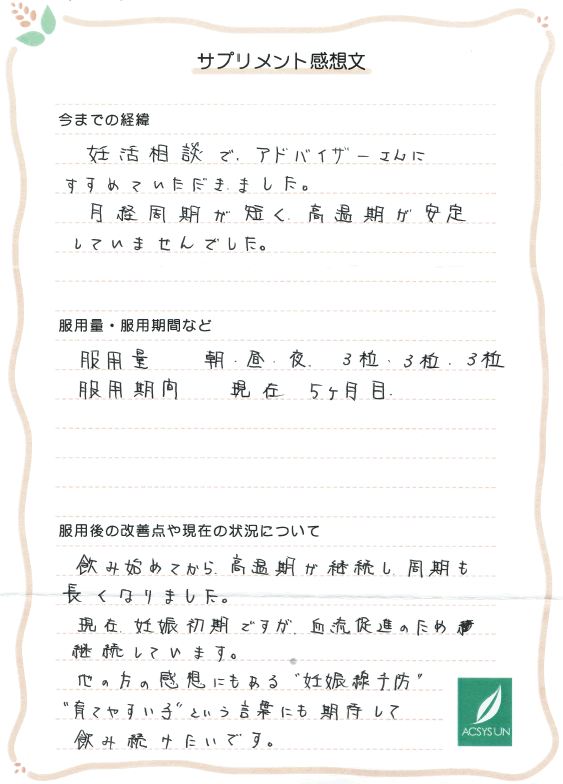 サプリメント感想文
今までの経緯
妊活相談で、アドバイザーさんに
すすめていただきました。
月経周期が短く、高温期が安定
していませんでした。
服用量・服用期間など
服用量 朝・昼・夜、3粒・3粒・3粒
服用期間 現在 5ヶ月目.
服用後の改善点や現在の状況について
飲み始めてから、高温期が継続し、周期も
長くなりました。
現在、妊娠初期ですが、血流促進のため
継続しています。
他の方の感想にもある“妊娠線予防”
“育てやすい子”という言葉にも期待して
飲み続けたいです。
ACSYSUN